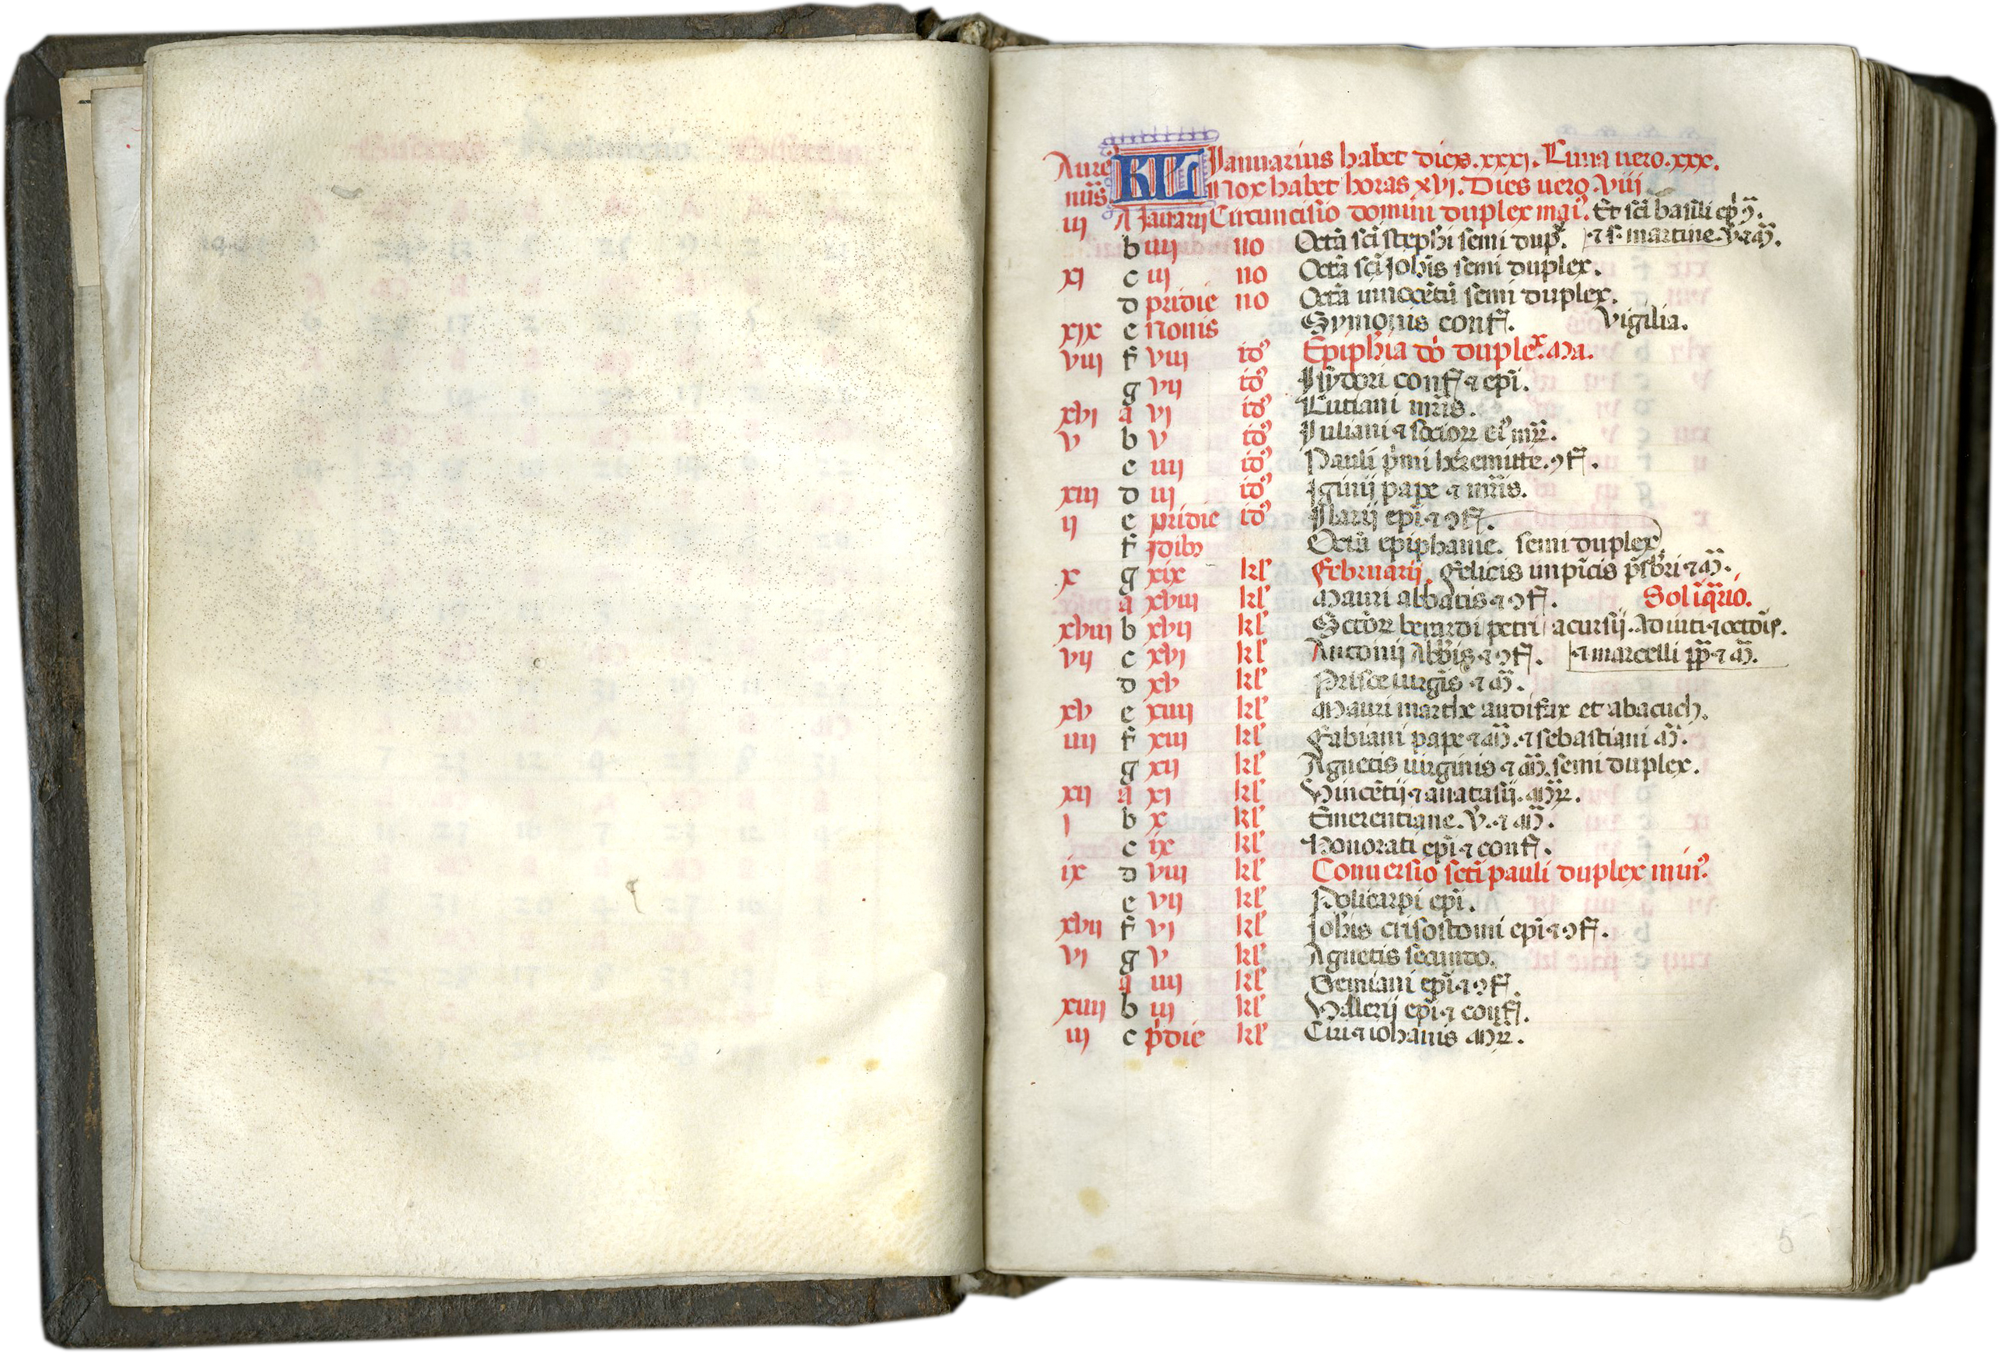 Aure KL Januarius habet dies .xxxj. Luna uero .xxx.
nũs Nox habet horas xvj. Dies uero viii
iij A Januarij Circuncisio domini duplex mai9. Et sc̃i basilii ep̃
b iiij no Octã sc̃i steph̃i semi dup̃. ⁊ s. martine v. ⁊ m̃.
xj c iij no Octã sc̃i Joh̃is semi duplex.
d pridie no Octã innocẽtũ semi duplex.
xix e nonis Symonis conf̃. Vigilia.
viij f viij id9 Epiph̃ia dõ duplex Ma.
g vij id9 Isydori conf̃ ⁊ ep̃i.
xvi a vj id9 Luciani mr̃is.
v b v id9 Juliani ⁊ socioꝝ ei9 mr̃ꝝ.
c iiij id9 Pauli p̃mi heremitte. ꝯf̃.
xiij d iij id9 Iginij pape ⁊ mr̃is.
ij e pridie id9 Ilarij ep̃i ⁊ ꝯf̃.
f Idibꝫ Octã epiphanie. semi duplex
x g xix kl̃ Februarij. Felicis inpĩcis p̃sbr̃i ⁊ m̃.
a xviij kl̃ Mauri abbatis ⁊ ꝯf̃. Sol ĩ aq̃rio.
xviij b xvij kl̃ Sctõꝝ berardi petri acursij. Adiuti ⁊ octõis.
vij c xvj kl̃ Antonij Abb̃is ⁊ ꝯf̃. ⁊ marcelli pp̃ ⁊ m̃.
d xv kl̃ Prisce uirgis ⁊ m̃.
xv e xiiij kl̃ Mauri marthe audifax et abacuch.
iiij f xiij kl̃ Fabiani pape ⁊ m̃. ⁊ sebastiani m̃.
g xij kl̃ Agnetis uirginis ⁊ m̃. semi duplex.
xij a xj kl̃ Vincẽtij ⁊ anatasij. mr̃ꝝ.
j b x kl̃ Emerentiane. ṽ. ⁊ m̃.
c ix kl̃ Honorati ep̃i ⁊ conf̃.
ix d viij kl̃ Conuersio scti pauli duplex min9.
e vij kl̃ Policarpi ep̃i.
xvij f vj kl̃ Joh̃is crisostomi ep̃i ⁊ ꝯf̃.
vj g v kl̃ Agnetis secundo.
a iiij kl̃ Gemiani ep̃i ⁊ ꝯf̃.
xiiij b iij kl̃ Vallerij ep̃i ⁊ conf̃.
iij c p̃die kl̃ Ciri ⁊ iohanis mr̃ꝝ.
5